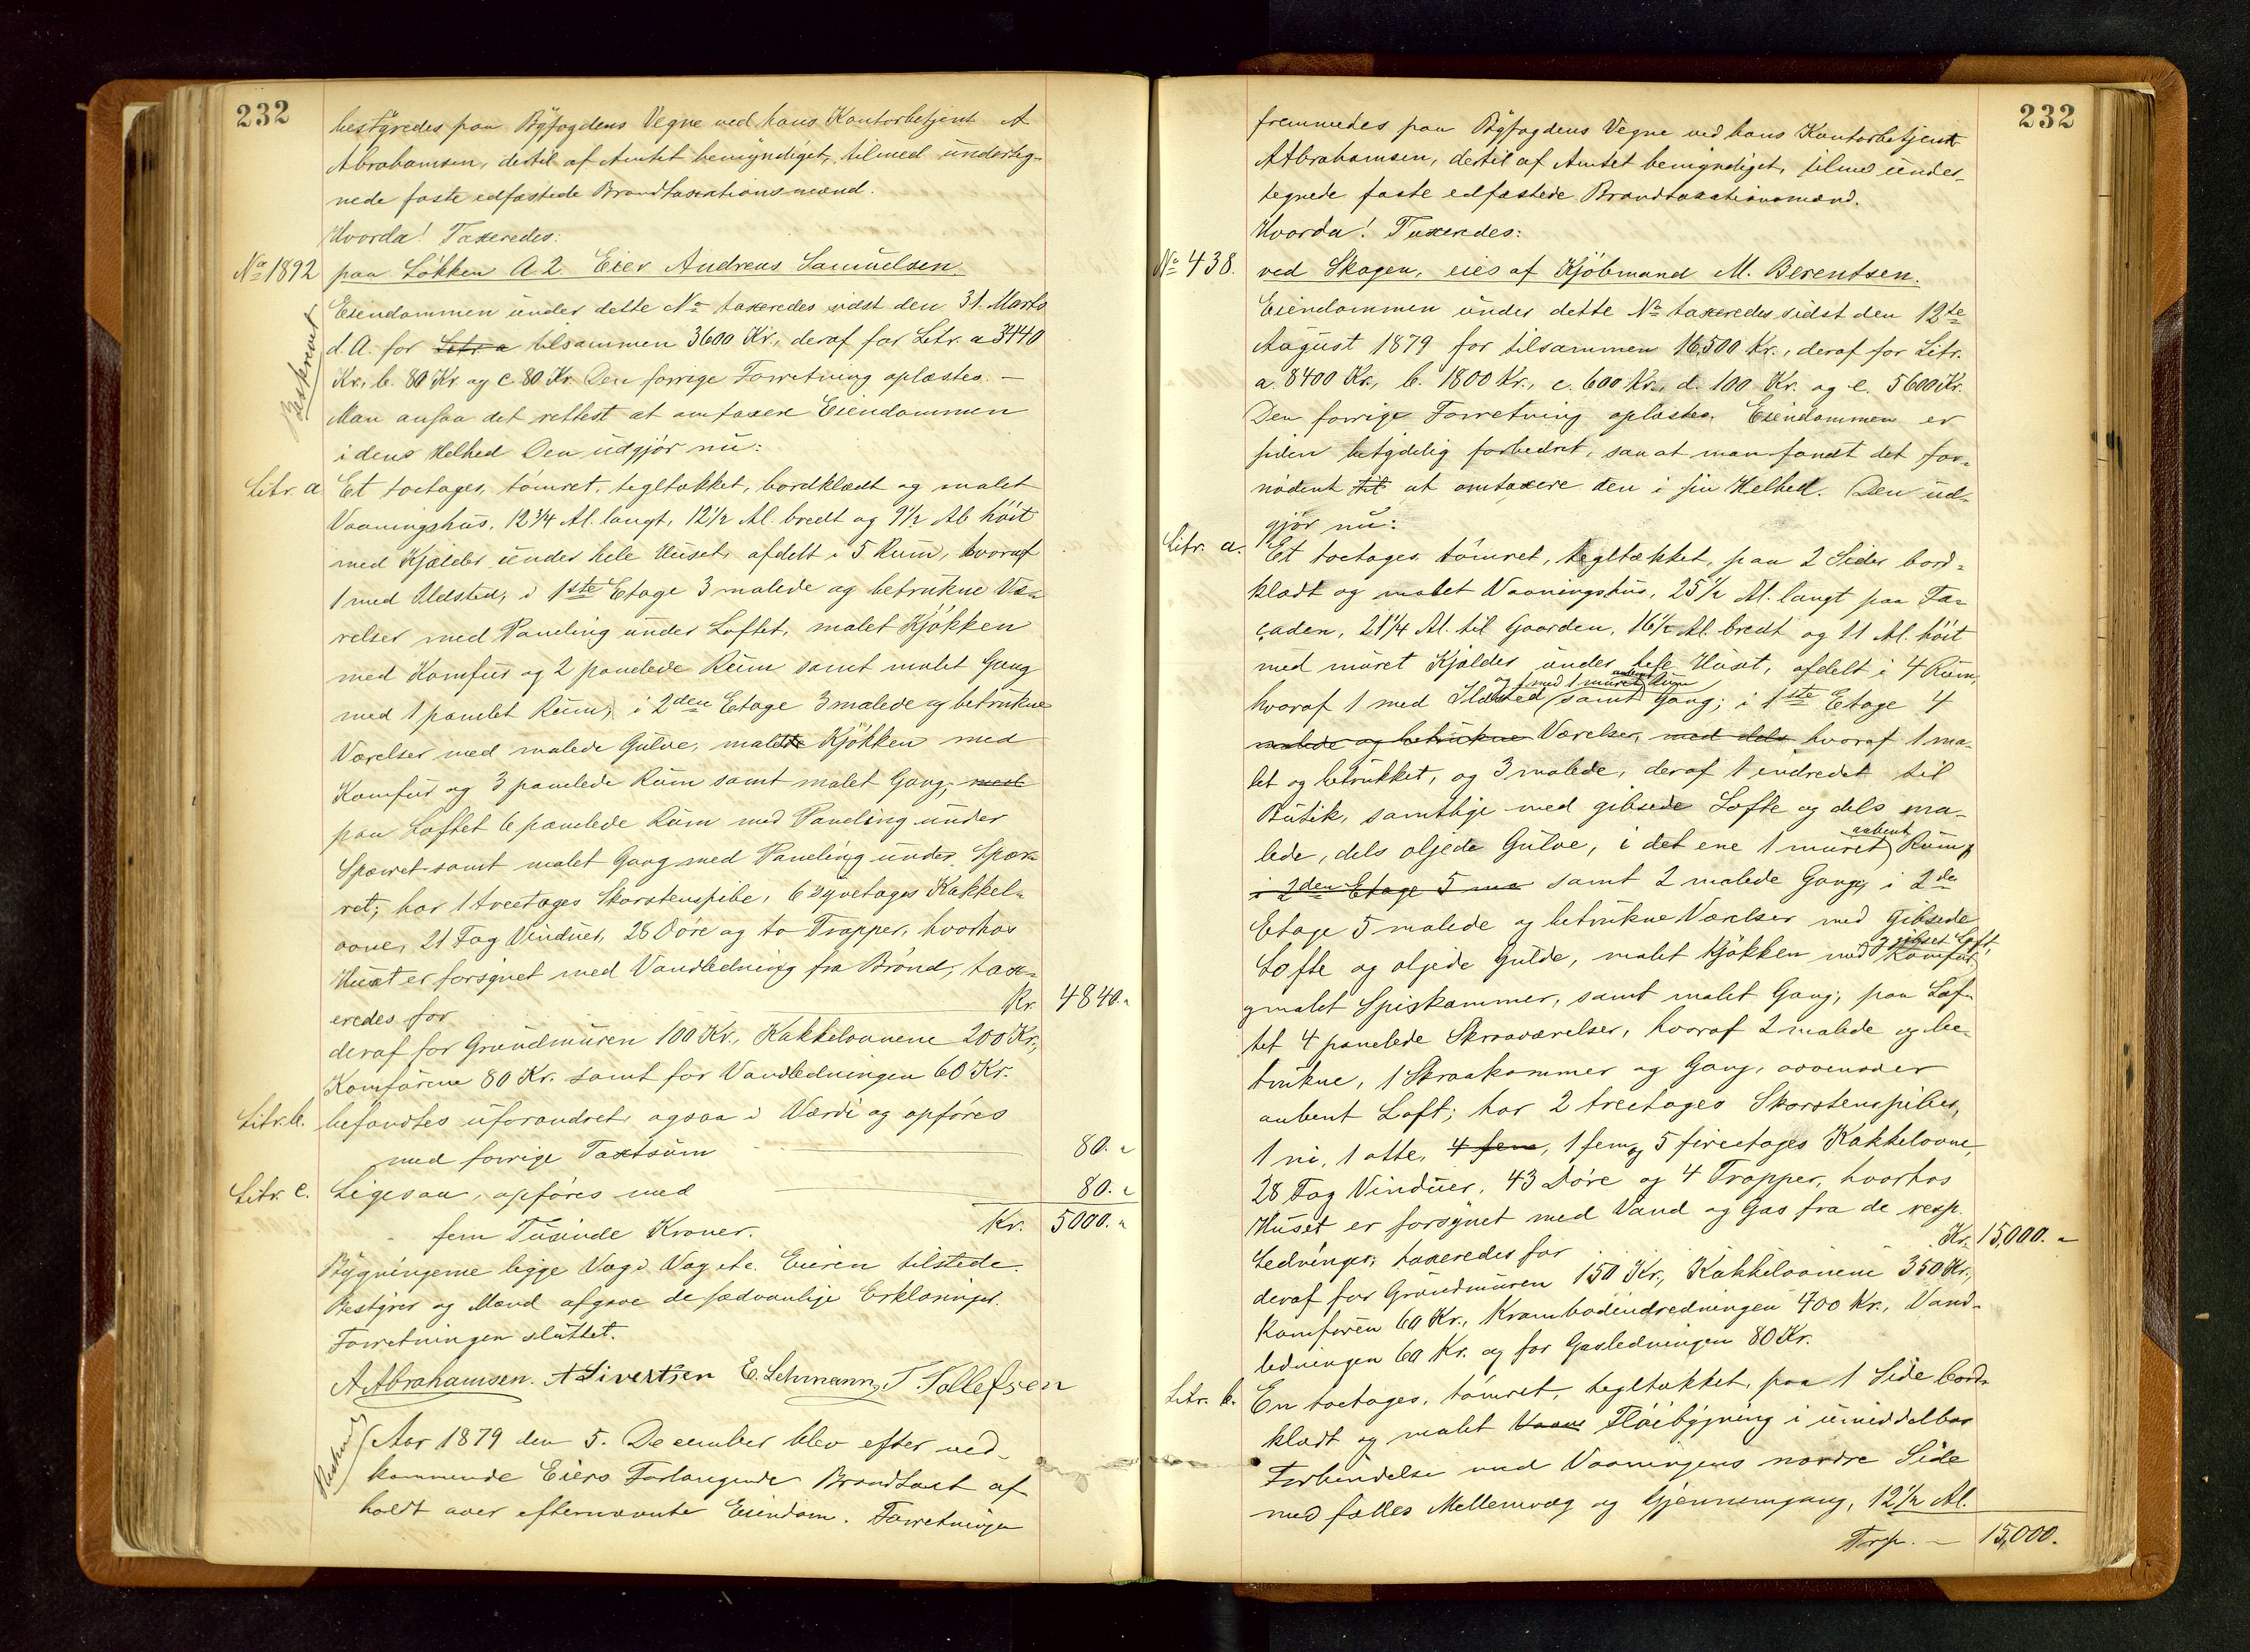 232
bestyredes paa Byfogdens Vegne ved hans Kontorbetjent A
Abrahamsen, dertil af Amtet bemyndiget, tilmed underteg-
nede faste edfæstede Brandtaxationsmænd.
Hvorda! Taxeredes:
No 1892 paa Løkken A. 2. Eier Andreas Samuelsen.
Beskrevet
Eiendommen under dette No taxeredes sidst den 31. Marts
d. A. for Litr. a tilsammen 3600 Kr., deraf for Litr. a 3440
Kr., b. 80 Kr. og c. 80 Kr. Den forrige Forretning oplæstes. —
Man ansaa det rettest at omtaxere Eiendommen
i dens Helhed Den udgjør nu:
Litr. a Et toetages, tømret, tegltækket, bordklædt og malet
Vaaningshus, 12 3/4 Al. langt, 12 1/2 Al. bredt og 9 1/2 Al. høit
med Kjælder under hele Huset, afdelt i 5 Rum, hvoraf
1 med Ildsted; i 1ste Etage 3 malede og betrukne Væ-
relser med Paneling under Loftet, malet Kjøkken
med Komfur og 2 panelede Rum samt malet Gang
med 1 panelet Rum; i 2den Etage 3 malede og betrukne
Værelser med malede Gulve, malet Kjøkken med
Komfur og 3 panelede Rum samt malet Gang;
paa Loftet 6 panelede Rum med Paneling under
Sparret samt malet Gang med Paneling under Spær-
ret; har 1 treetages Skorstenspibe, 6 syvetages Kakkel-
ovne, 21 Fag Vinduer, 28 Døre og to Trapper, hvorhos
Huset er forsynet med Vandledning fra Brønd, tax-
eredes for Kr. 4840. "
deraf for Grundmuren 100 Kr., Kakkelovnene 200 Kr.,
Komfurene 80 Kr. samt for Vandledningen 60 Kr.
Litr. b. befandtes uforandret, ogsaa i Værdi og opføres
med forrige Taxtsum — 80. "
Litr. c. Ligesaa, opføres med — 80. "
fem Tusinde Kroner. Kr. 5000. "
Bygningerne ligge Væg i Væg etc. Eieren tilstede.
Bestyrer og Mænd afgave de sædvanlige Erklæringer.
Forretningen sluttet.
A Abrahamsen. A Sivertsen E. Lehmann, T. Tollefsen
Aar 1879 den 5. December blev efter ved-
kommende Eiers Forlangende Brandtaxt af
holdt over efternævnte Eiendom. Forretningen
232
fremmedes paa Byfogdens Vegne ved hans Kontorbetjent
A Abrahamsen, dertil af Amtet bemyndiget, tilmed under-
tegnede faste edfæstede Brandtaxationsmænd.
Hvorda! Taxeredes:
No 438. ved Skagen, eies af Kjøbmand M. Berentsen.
Eiendommen under dette No taxeredes sidst den 12te
August 1879 for tilsammen 16,500 Kr., deraf for Litr.
a. 8400 Kr., b. 1800 Kr., c. 600 Kr., d. 100 Kr. og e. 5600 Kr.
Den forrige Forretning oplæstes. Eiendommen er
siden betydelig forbedret, saa at man fandt det for-
nødent til at omtaxere den i sin Helhed. Den ud-
gjør nu:
Litr. a. Et toetages tømret, tegltækket, paa 2 Sider bord-
klædt og malet Vaaningshus, 25 1/2 Al. langt paa Fa-
çaden, 21 1/4 Al. til Gaarden, 16 1/2 Al. bredt og 11 Al. høit
med muret Kjælder under hele Huset, afdelt i 4 Rum,
og 1 med 1 muret Rum
hvoraf 1 med Ildsted samt Gang; i 1ste Etage 4
malede og betrukne Værelser, med dels hvoraf 1 ma-
let og betrukket, og 3 malede, deraf 1 indredet til
Butik, samtlige med gibsede Lofte og dels ma-
lede, dels oljede Gulve, i det ene 1 muret aabent Rum,
i 2den Etage 5 ma samt 2 malede Gange; i 2den
Etage 5 malede og betrukne Værelser med gibsede
Lofte og oljede Gulve, malet Kjøkken med Komfur og gibset Loft,
malet Spiskammer, samt malet Gang; paa Lof-
tet 4 panelede Skraaværelser, hvoraf 2 malede og be-
trukne, 1 Skraakammer og Gang, ovenover
aabent Loft; har 2 treetages Skorstenspiber,
1 ni, 1 otte, 4 fem, 1 fem og 5 fireetages Kakkelovne,
28 Fag Vinduer, 43 Døre og 4 Trapper, hvorhos
Huset er forsynet med Vand og Gas fra de resp.
Ledninger; taxeredes for Kr. 15,000. "
deraf for Grundmuren 150 Kr., Kakkelovnene 350 Kr.,
Komfuren 60 Kr., Krambodindredningen 400 Kr., Vand-
ledningen 60 Kr. og for Gasledningen 80 Kr.
Litr. b. En toetages, tømret, tegltækket, paa 1 Side bord-
klædt og malet Vaan Fløibygning i umiddelbar
Forbindelse med Vaaningens nordre Side
med fælles Mellemvæg og Gjennemgang, 12 1/2 Al.
Trsp. — 15,000.